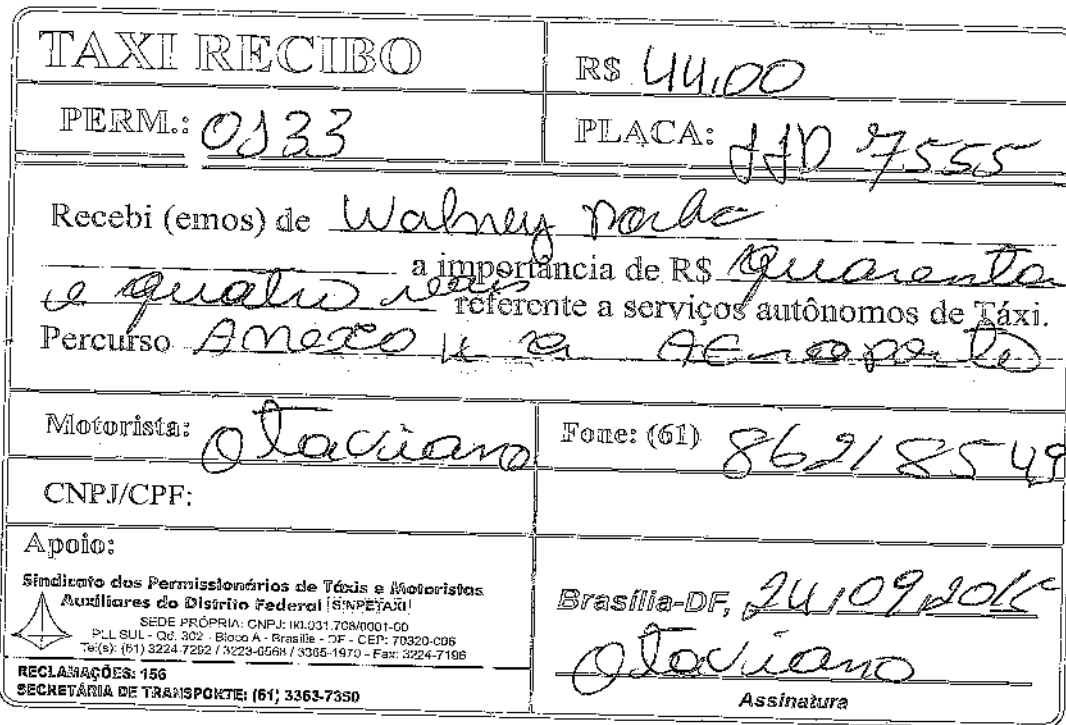 TAXI RECIBO
R$ 44,00
PERM.: 0133
PLACA: JJD 7555
Recebi (emos) de Walney
a importância de R$ Quarenta
e quatro reais referente a serviços autônomos de Táxi.
Percurso Anexo a Aeroporto
Motorista: Otaviano
Fone: (61) 8621 8549
CNPJ/CPF:
Apoio:
Sindicato dos Permissionários de Táxis e Motoristas
Auxiliares do Distrito Federal SINPETAXI
SEDE PRÓPRIA: CNPJ:
PLL SUL - Qd. 302 - Bloco A - Brasília - DF - CEP:
Tel(s): (61) 3224-7292 / 3223-6568 / 3365-1970 - Fax: 3224-7196
RECLAMAÇÕES: 156
SECRETÁRIA DE TRANSPORTE: (61) 3363-7350
Brasília-DF, 24/09/2015
Otaviano
Assinatura